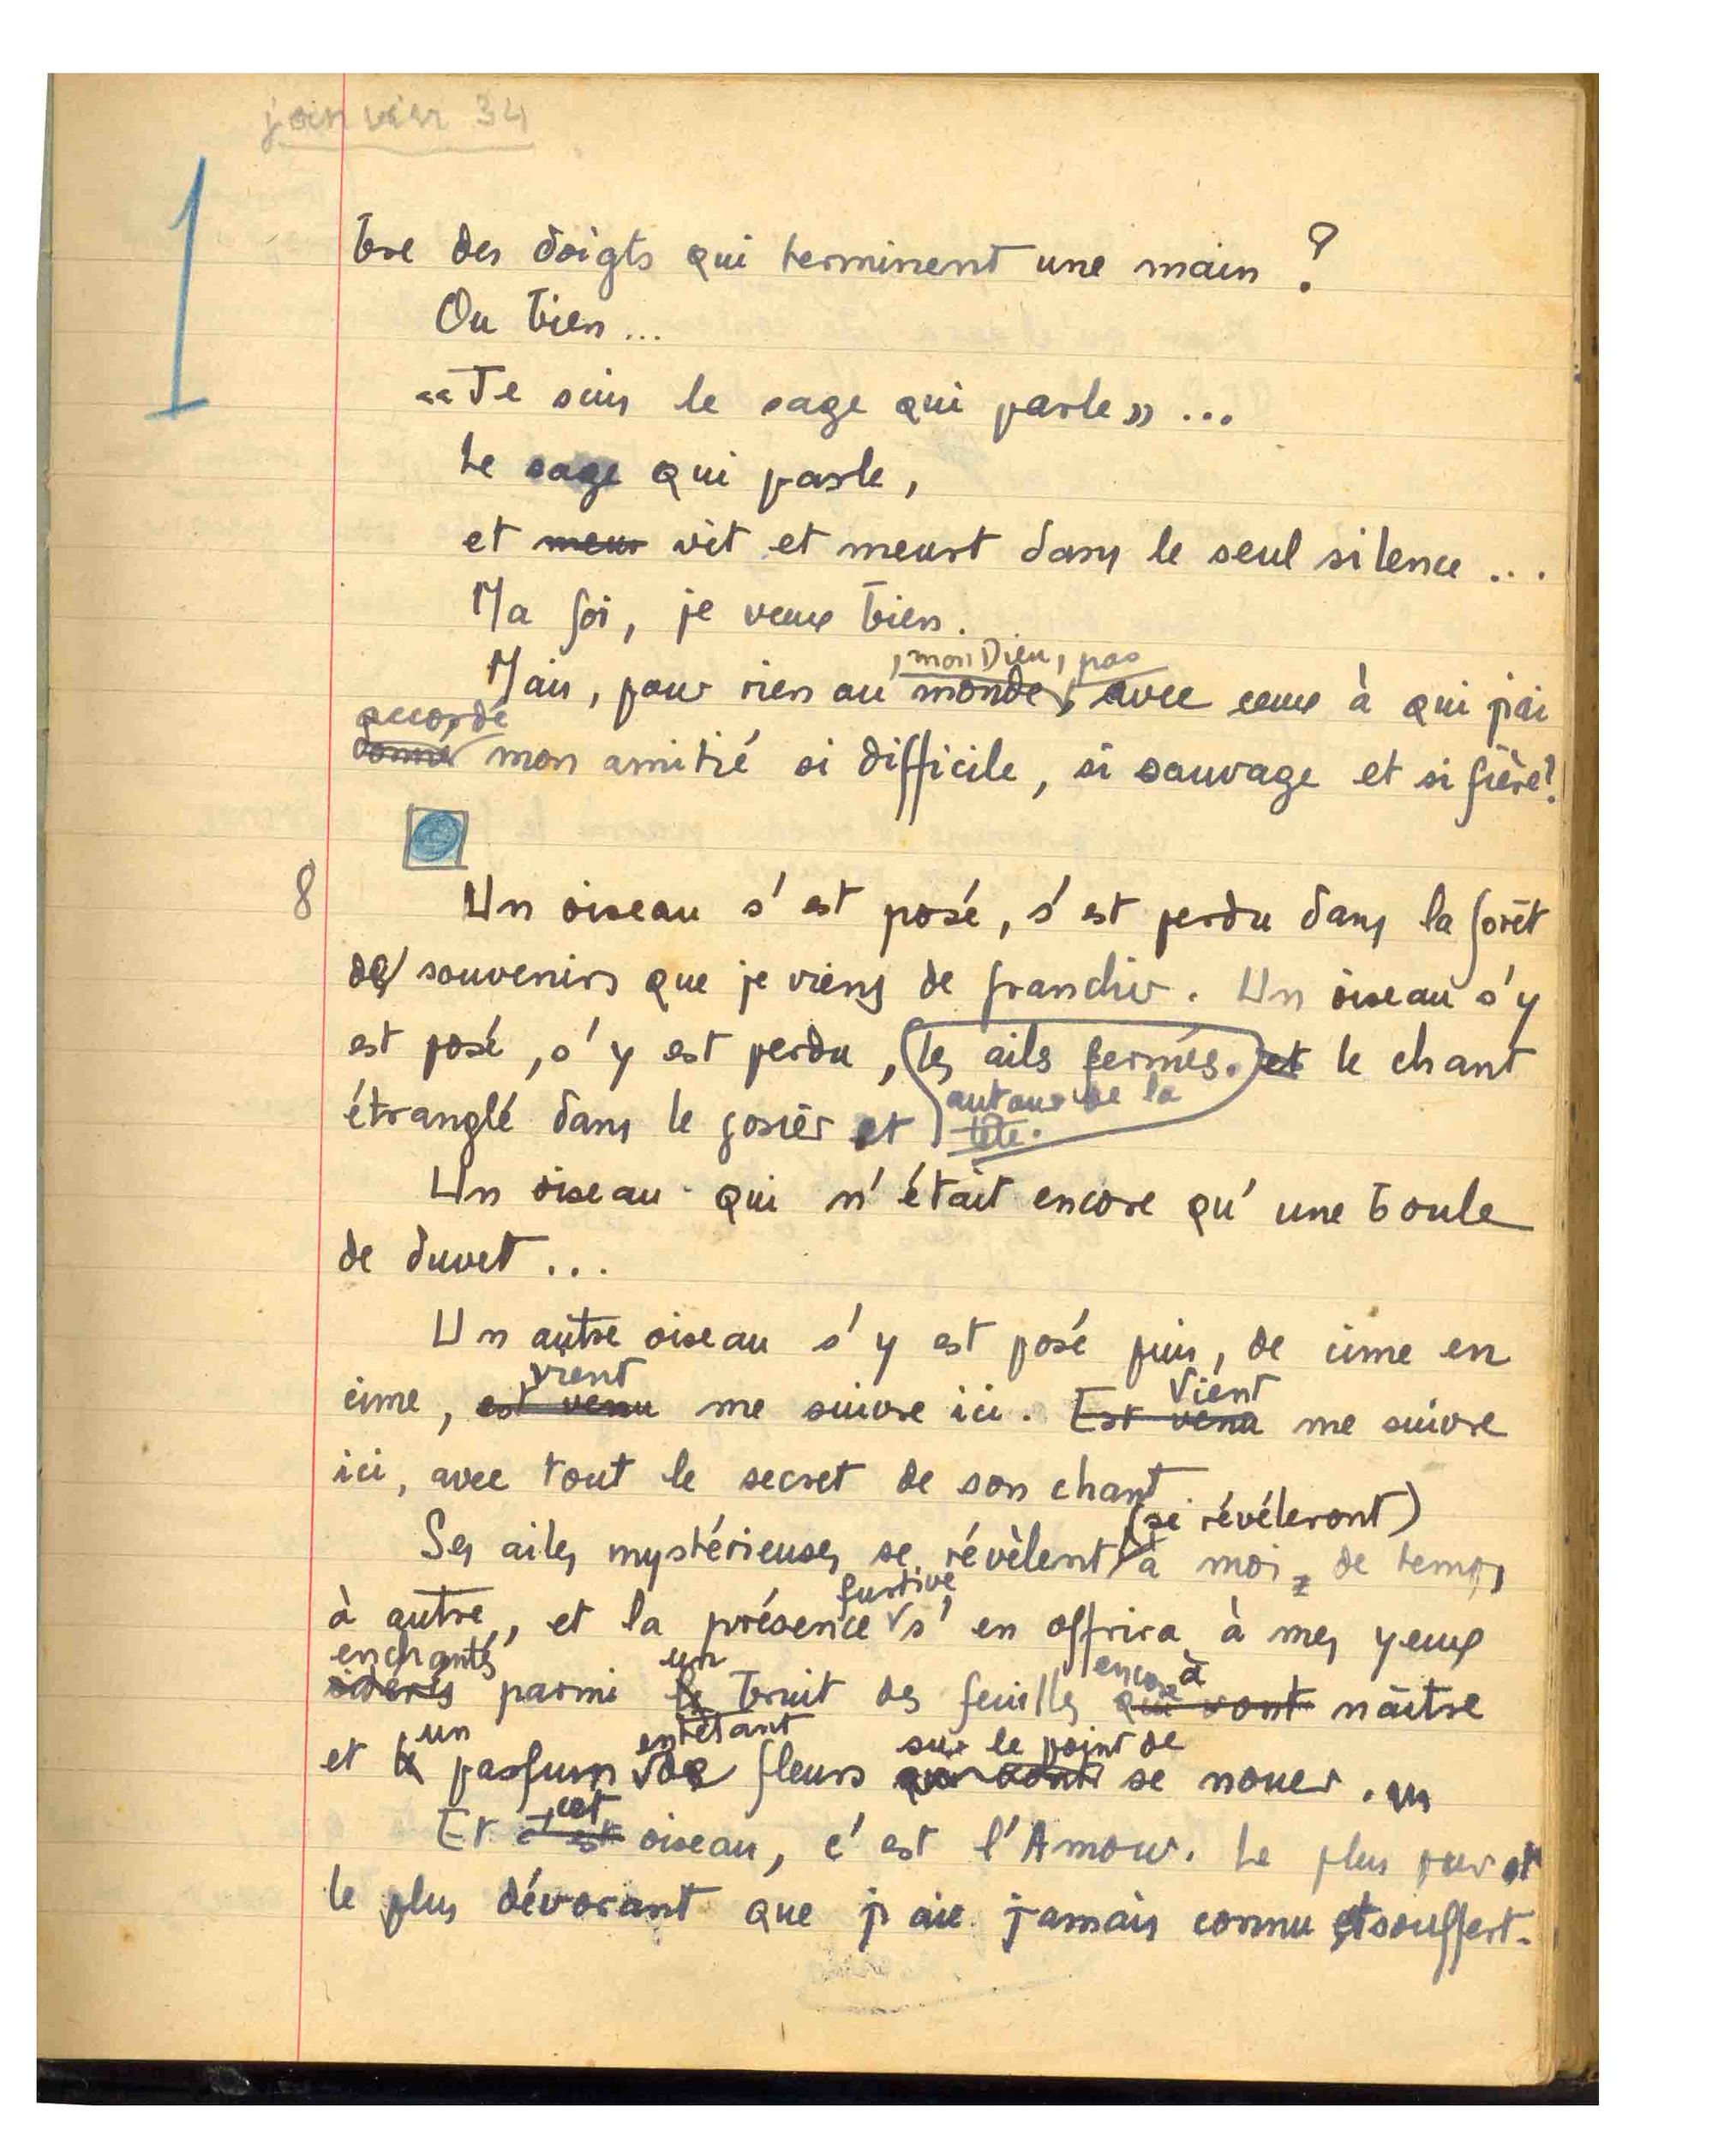 janvier 34
1
bre des doigts qui terminent une main ?
Ou bien...
«Je suis le sage qui parle» ...
Le sage qui parle,
et meur vit et meurt dans le seul silence ...
Ma foi, je veux bien.
, mon Dieu, pas
Mais, pour rien au monde, avec ceux à qui j'ai
accordé
donné mon amitié si difficile, si sauvage et si fière!
8
Un oiseau s'est posé, s'est perdu dans la forêt
de souvenirs que je viens de franchir. Un oiseau s'y
est posé, s'y est perdu, les ails fermés. et le chant
autour de la
étranglé dans le gosier et tête.
Un oiseau qui n'était encore qu'une boule
de duvet ...
Un autre oiseau s'y est posé puis, de cime en
vient Vient
cime, est venu me suivre ici. Est venu me suivre
ici, avec tout le secret de son chant.
(se révéleront)
Ses ailes mystérieuses se révèlent à moi, de temps
furtive
à autre, et la présence s'en offrira à mes yeux
enchantés un encore à
sidérés parmi le bruit des feuilles qui vont naître
un entêtant sur le point de
et le parfum de fleurs qui vont se nouer.
cet
Et c'est oiseau, c'est l'Amour. Le plus pur et
le plus dévorant que j'aie jamais connu et souffert.